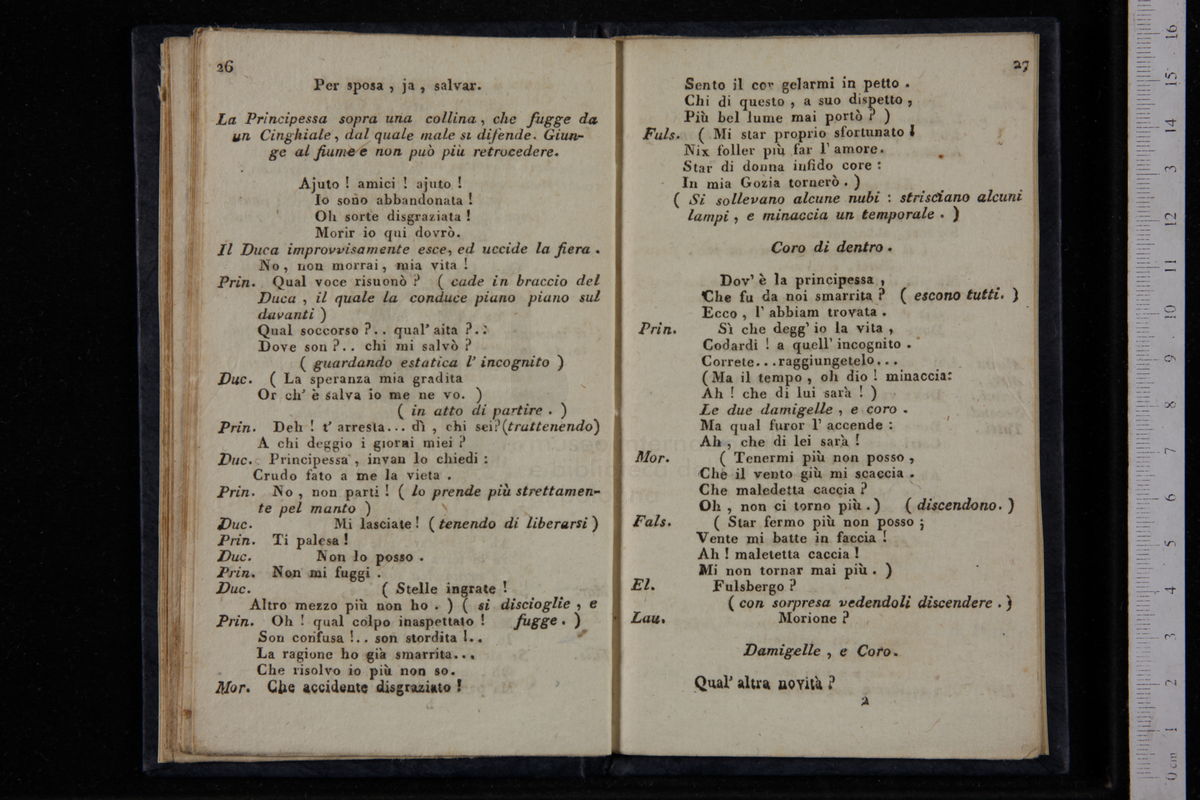 26
Per sposa , ja , salvar.
La Principessa sopra una collina, che fugge da
un Cinghiale, dal quale male si difende. Giun-
ge al fiume e non può più retrocedere.
Ajuto ! amici ! ajuto !
Io sono abbandonata !
Oh sorte disgraziata !
Morir io qui dovrò.
Il Duca improvvisamente esce, ed uccide la fiera .
No, non morrai, mia vita !
Prin. Qual voce risuonò ? ( cade in braccio del
Duca , il quale la conduce piano piano sul
davanti )
Qual soccorso ?.. qual' aita ?..
Dove son ?.. chi mi salvò ?
( guardando estatica l' incognito )
Duc. ( La speranza mia gradita
Or ch' è salva io me ne vo. )
( in atto di partire . )
Prin. Deh ! t' arresta... dì , chi sei?(trattenendo)
A chi deggio i giorni miei ?
Duc. Principessa , invan lo chiedi :
Crudo fato a me la vieta .
Prin. No , non parti ! ( lo prende più strettamen-
te pel manto )
Duc. Mi lasciate! (tenendo di liberarsi)
Prin. Ti palesa !
Duc. Non lo posso .
Prin. Non mi fuggi .
Duc. ( Stelle ingrate !
Altro mezzo più non ho . ) ( si discioglie , e
Prin. Oh ! qual colpo inaspettato ! fugge . )
Son confusa !.. son stordita !..
La ragione ho già smarrita...
Che risolvo io più non so.
Mor. Che accidente disgraziato !
27
Sento il cor gelarmi in petto .
Chi di questo , a suo dispetto ,
Più bel lume mai portò ? )
Fals. ( Mi star proprio sfortunato !
Nix foller più far l' amore.
Star di donna infido core :
In mia Gozia tornerò . )
( Si sollevano alcune nubi : strisciano alcuni
lampi , e minaccia un temporale . )
Coro di dentro .
Dov' è la principessa ,
Che fu da noi smarrita ? ( escono tutti. )
Ecco , l' abbiam trovata .
Prin. Sì che degg' io la vita ,
Codardi ! a quell' incognito .
Correte...raggiungetelo...
(Ma il tempo , oh dio ! minaccia:
Ah ! che di lui sarà ! )
Le due damigelle , e coro .
Ma qual furor l' accende :
Ah , che di lei sarà !
Mor. ( Tenermi più non posso ,
Chè il vento giù mi scaccia .
Che maledetta caccia ?
Oh , non ci torno più . ) ( discendono. )
Fals. ( Star fermo più non posso ;
Vente mi batte in faccia !
Ah ! maletetta caccia !
Mi non tornar mai più . )
El. Fulsbergo ?
( con sorpresa vedendoli discendere . )
Lau. Morione ?
Damigelle , e Coro.
Qual' altra novità ?
2
0 cm 1 2 3 4 5 6 7 8 9 10 11 12 13 14 15 16